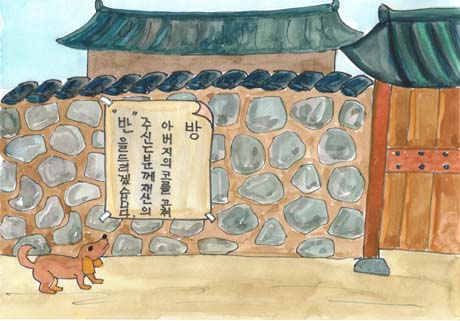 방
아버지의 코를 고쳐
주시는분께 재산의
"반"을드리겠습니다.